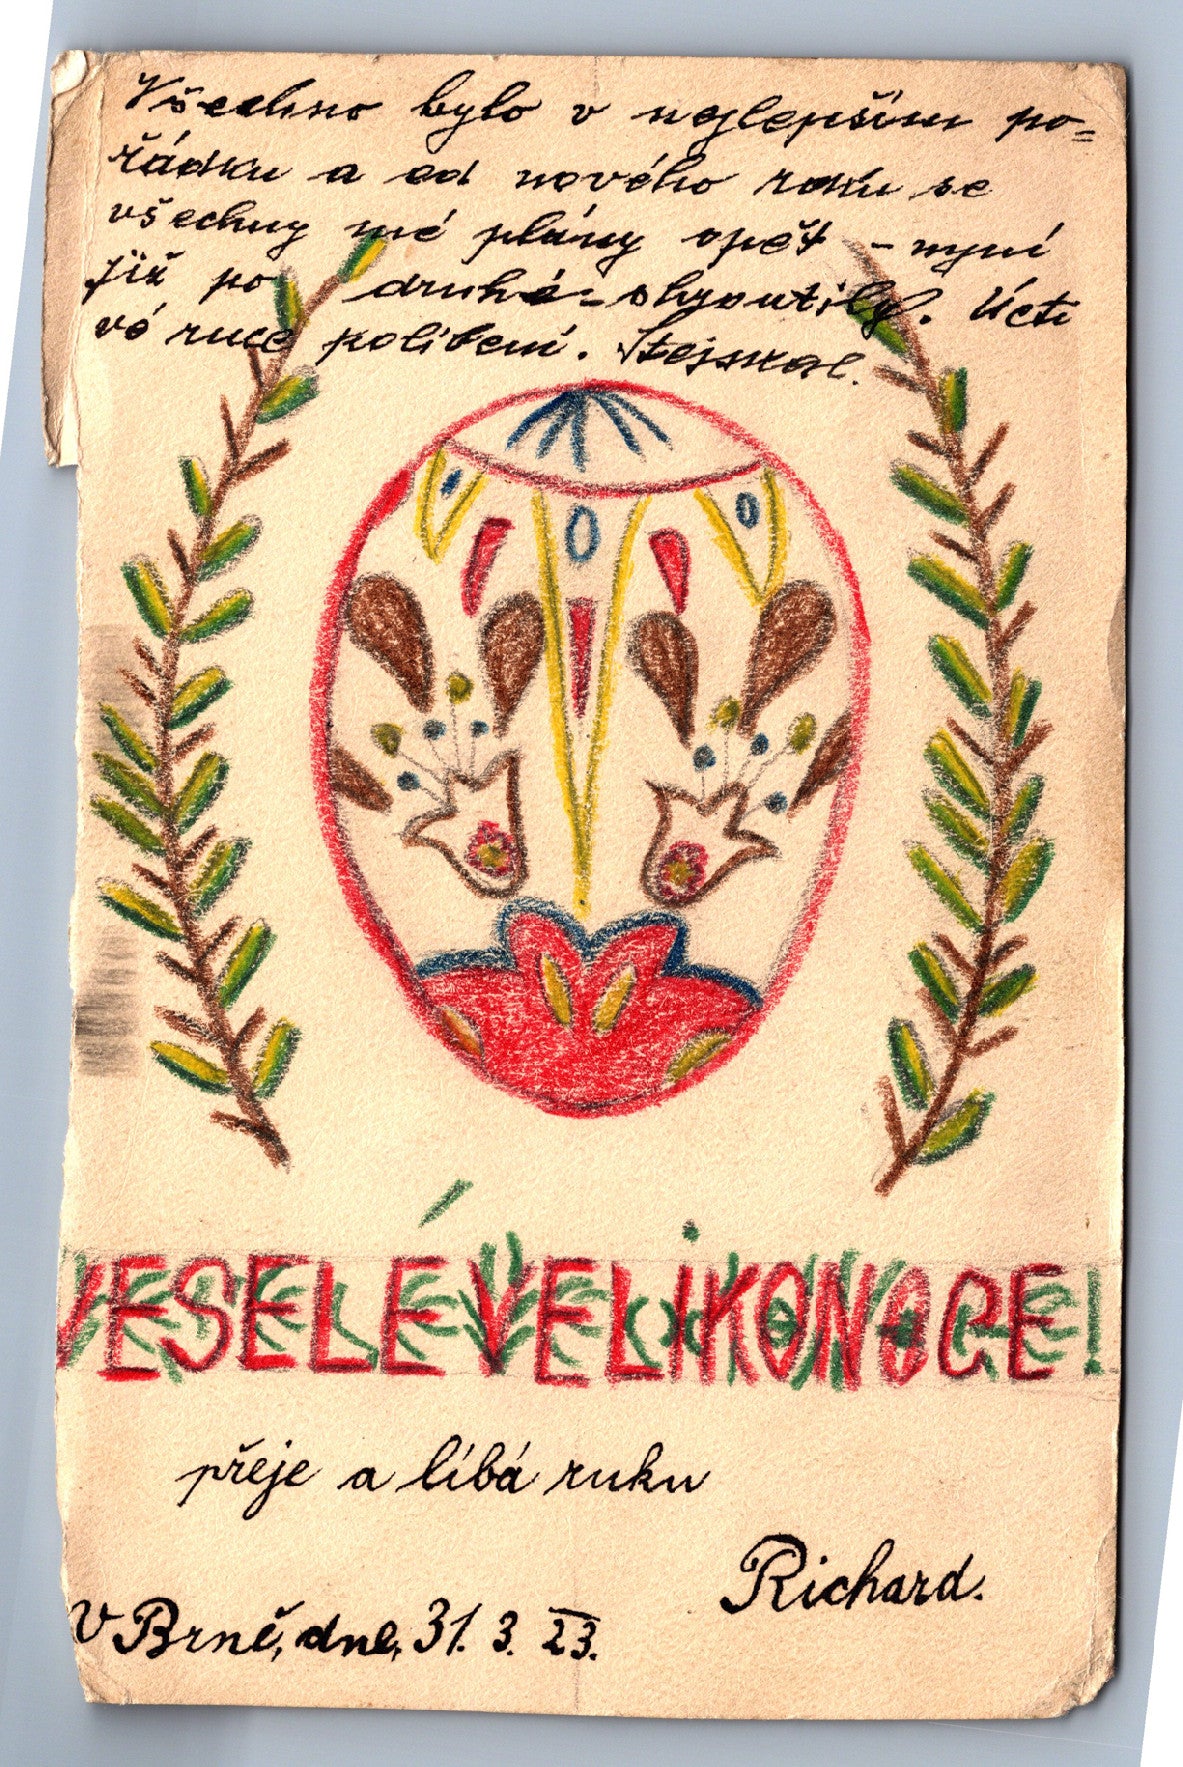 Všechno bylo v nejlepším po=
řádku a od nového roku se
všechny mé plány opět – nyní
již po druhé – zhroutily. Úcti
vé ruce políbení. Stejskal.
VESELÉ VELIKONOCE!
přeje a líbá ruku
Richard.
V Brně, dne, 31. 3. 23.